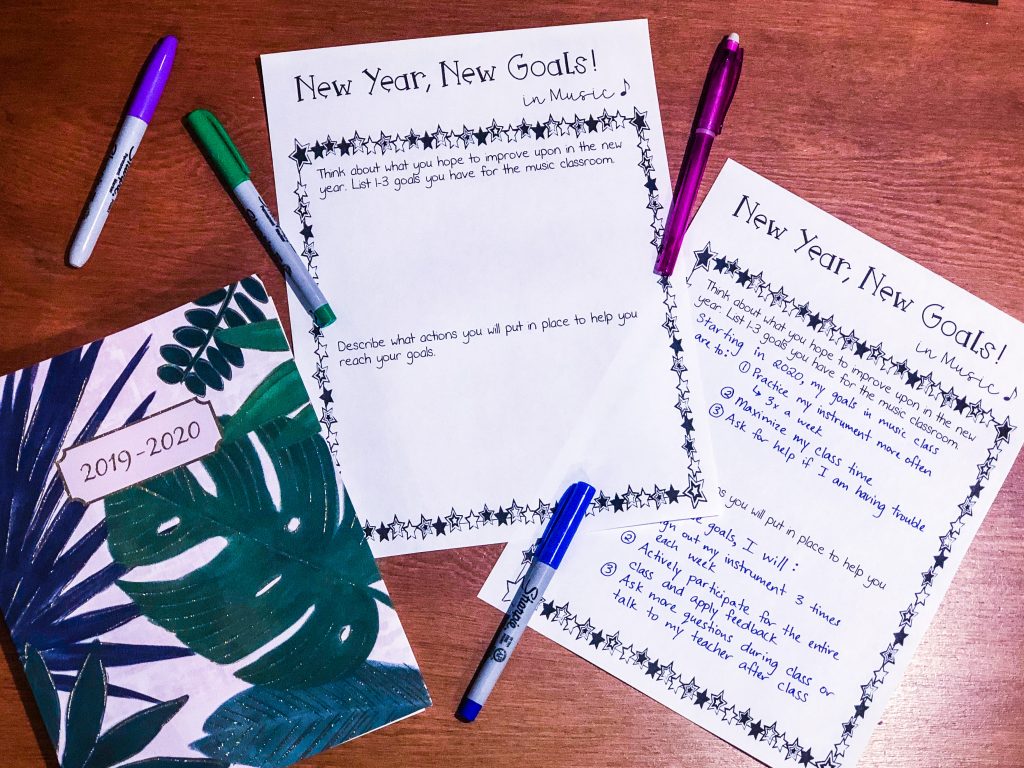 New Year, New Goals!
in Music
Think about what you hope to improve upon in the new
year. List 1-3 goals you have for the music classroom.
Describe what actions you will put in place to help you
reach your goals.
2019-2020
Sharpie
New Year, New Goals!
in Music
Think about what you hope to improve upon in the new
year. List 1-3 goals you have for the music classroom.
Starting in 2020, my goals in music class
are to:
① Practice my instrument more often
↳ 3x a week
② Maximize my class time
③ Ask for help if I am having trouble
you will put in place to help you
goals, I will:
out my instrument 3 times
each week
② Actively participate for the entire
class and apply feedback
③ Ask more questions during class or
talk to my teacher after class